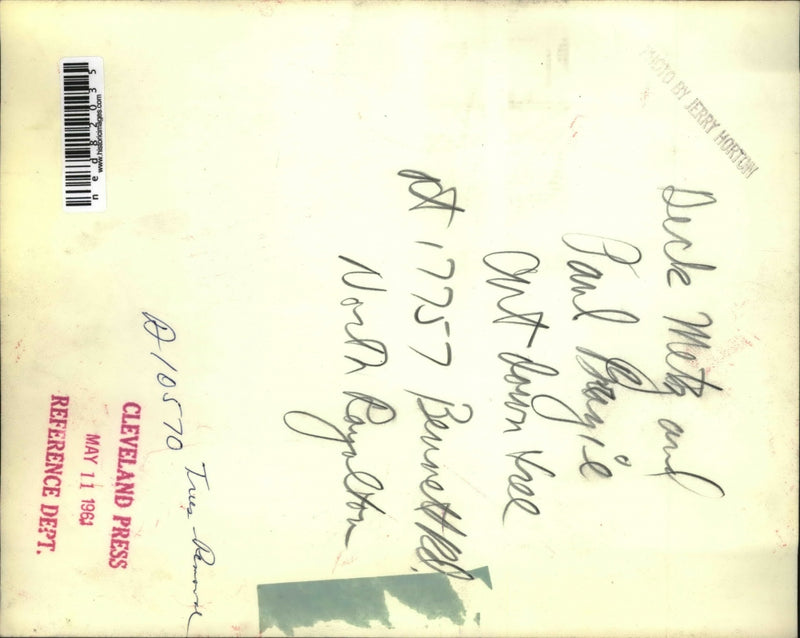 PHOTO BY JERRY HORTON
Dick Metz and
Paul
Cut down tree
at 17757 Bennett Rd.
North Royalton
A 10570 Trees - Removal
CLEVELAND PRESS
MAY 11 1961
REFERENCE DEPT.
www.historicimages.com
ned82035